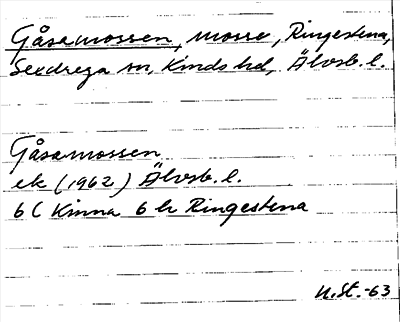 Gåsamossen, mosse, Ringestena,
Sexdrega sn, Kinds hd, Älvsb. l.
Gåsamossen
ek (1962) Älvsb. l.
6 C Kinna 6 h Ringestena
N.St.-63